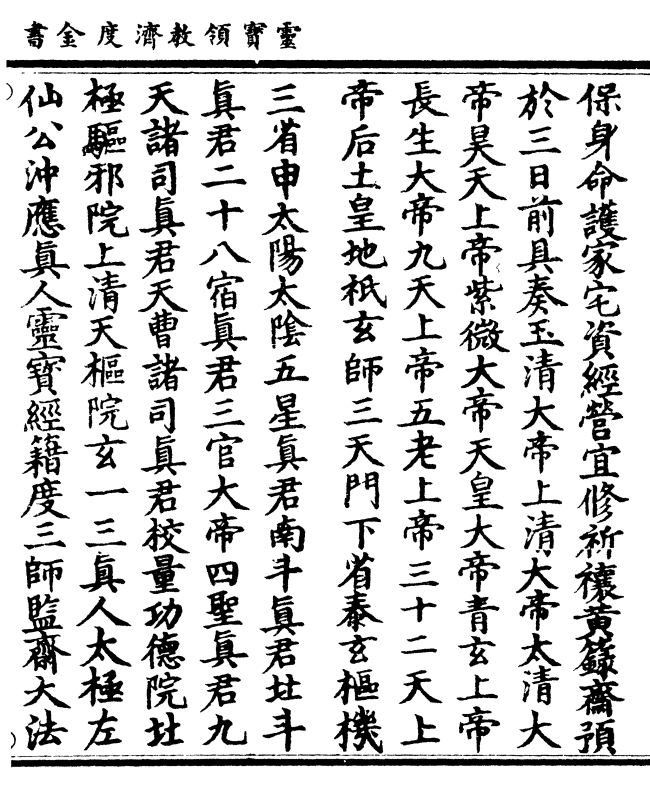 靈寶領教濟度金書
保身命護家宅資經營宜修祈禳黃籙齋預
於三日前具奏玉清大帝上清大帝太清大
帝昊天上帝紫微大帝天皇大帝青玄上帝
長生大帝九天上帝五老上帝三十二天上
帝后土皇地祇玄師三天門下省泰玄樞機
三省申太陽太陰五星真君南斗真君北斗
真君二十八宿真君三官大帝四聖真君九
天諸司真君天曹諸司真君校量功德院北
極驅邪院上清天樞院玄一三真人太極左
仙公沖應真人靈寶經籍度三師監齋大法